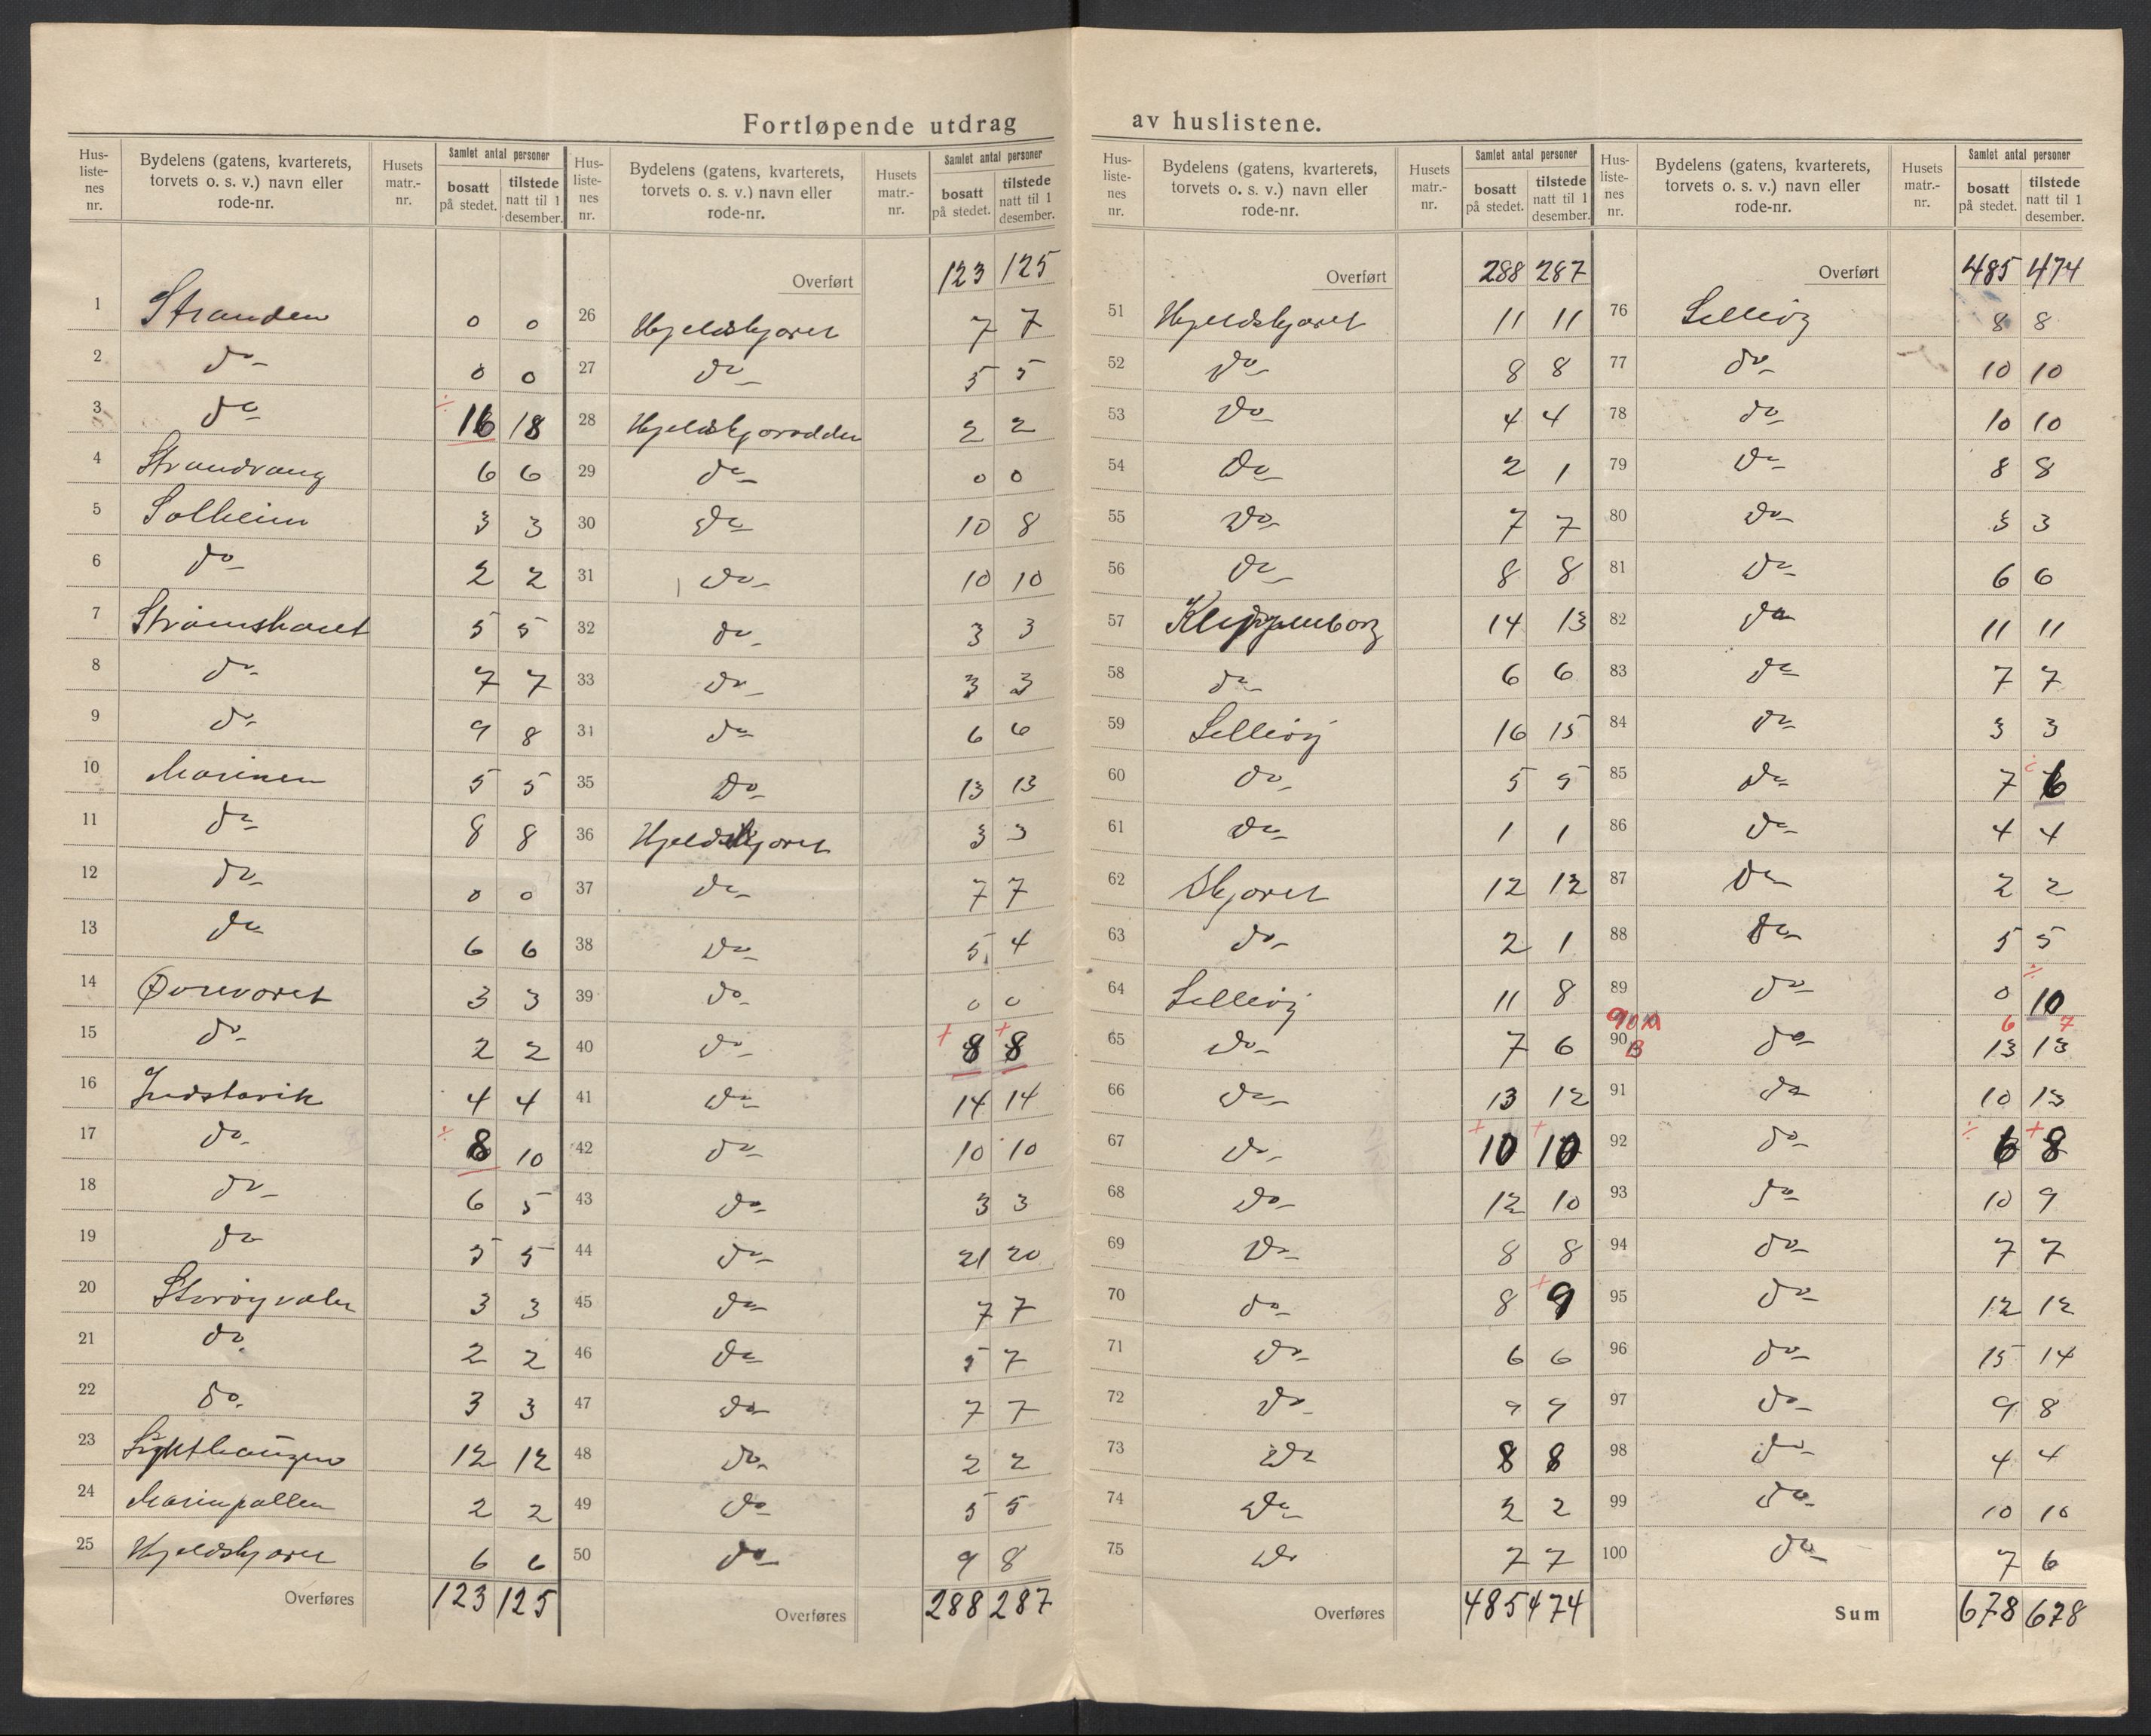 Fortløpende utdrag av huslistene.
Hus-listenes nr. Bydelens (gatens, kvarterets, torvets o. s. v.) navn eller rode-nr. Husets matr.-nr. Samlet antal personer bosatt på stedet. tilstede natt til 1 desember.
1 Stranden 0 0
2 do 0 0
3 do ÷ 16 18
4 Strandvang 6 6
5 Solheim 3 3
6 do 2 2
7 Strømshavet 5 5
8 do 7 7
9 do 9 8
10 Marinen 5 5
11 do 8 8
12 do 0 0
13 do 6 6
14 Øvrevoret 3 3
15 do 2 2
16 Indstavik 4 4
17 do ÷ 8 10
18 do 6 5
19 do 5 5
20 3 3
21 do 2 2
22 do 3 3
23 12 12
24 Marinpollen 2 2
25 Hjeldskjæret 6 6
Overføres 123 125
Hus-listenes nr. Bydelens (gatens, kvarterets, torvets o. s. v.) navn eller rode-nr. Husets matr.-nr. Samlet antal personer bosatt på stedet. tilstede natt til 1 desember.
Overført 123 125
26 Hjeldskjæret 7 7
27 do 5 5
28 Hjeldskjærodden 2 2
29 do 0 0
30 do 10 8
31 do 10 10
32 do 3 3
33 do 3 3
31 do 6 6
35 do 13 13
36 Hjeldskjæret 3 3
37 do 7 7
38 do 5 4
39 do 0 0
40 do + 8 + 8
41 do 14 14
42 do 10 10
43 do 3 3
44 do 21 20
45 do 7 7
46 do 5 7
47 do 7 7
48 do 2 2
49 do 5 5
50 do 9 8
Overføres 288 287
Hus-listenes nr. Bydelens (gatens, kvarterets, torvets o. s. v.) navn eller rode-nr. Husets matr.-nr. Samlet antal personer bosatt på stedet. tilstede natt til 1 desember.
Overført 288 287
51 Hjeldskjæret 11 11
52 do 8 8
53 do 4 4
54 do 2 1
55 do 7 7
56 do 8 8
57 Klippenborg 14 13
58 do 6 6
59 Sellevig 16 15
60 do 5 5
61 do 1 1
62 Skjæret 12 12
63 do 2 1
64 Sellevig 11 8
65 do 7 6
66 do 13 12
67 do + 10 + 10
68 do 12 10
69 do 8 8
70 do 8 + 9
71 do 6 6
72 do 9 9
73 do 8 8
74 do 2 2
75 do 7 7
Overføres 485 474
Hus-listenes nr. Bydelens (gatens, kvarterets, torvets o. s. v.) navn eller rode-nr. Husets matr.-nr. Samlet antal personer bosatt på stedet. tilstede natt til 1 desember.
Overført 485 474
76 Sellevig 8 8
77 do 10 10
78 do 10 10
79 do 8 8
80 do 3 3
81 do 6 6
82 do 11 11
83 do 7 7
84 do 3 3
85 do 7 6
86 do 4 4
87 do 2 2
88 do 5 5
89 do 0 ÷ 10
90 A 6 7
90 B do 13 13
91 do 10 13
92 do ÷ 6 + 8
93 do 10 9
94 do 7 7
95 do 12 12
96 do 15 14
97 do 9 8
98 do 4 4
99 do 10 10
100 do 7 6
Sum 678 678